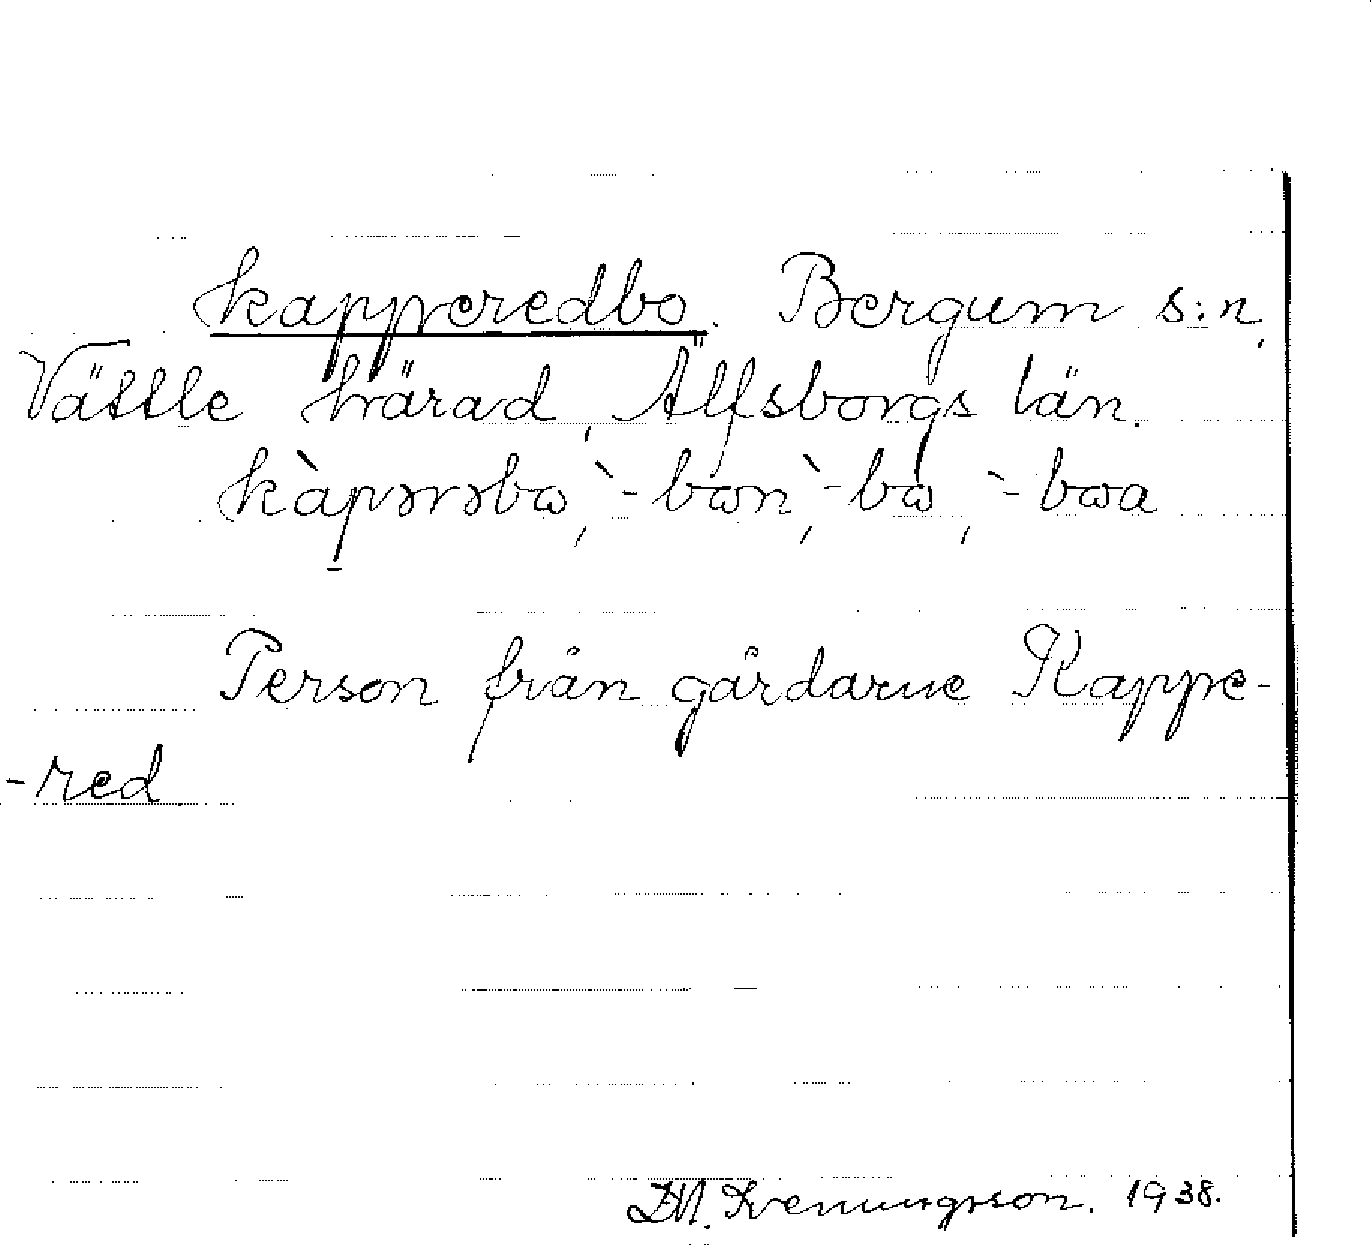 kapperedbo. Bergum s:n,
Vättle härad, Älfsborgs län.
kàpərəbω, `-bωn, `-bω, `-bωa
Person från gårdarne Kappe-
-red
Svenungsson. 1938.